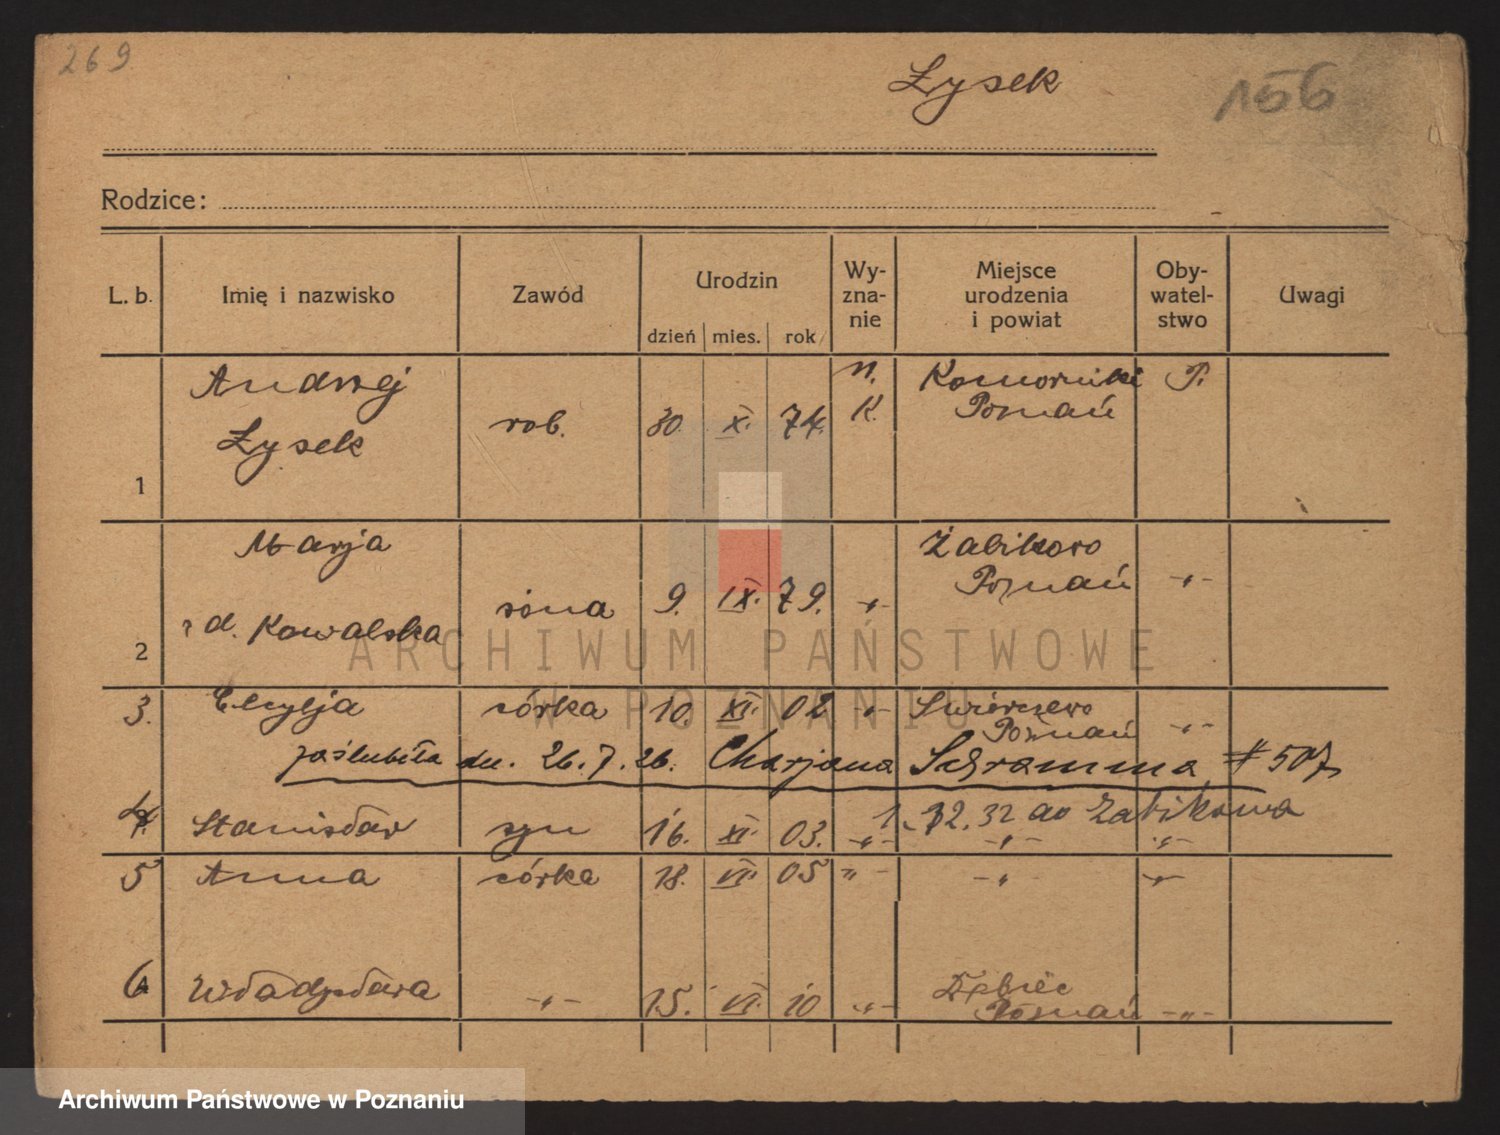 269
Łysek
156
Rodzice:
L. b. Imię i nazwisko Zawód Urodzin dzień mies. rok Wy-zna-nie Miejsce urodzenia i powiat Oby-watel-stwo Uwagi
Andrzej
Łysek
1 rob. 30. X. 74. K. Komorniki P.
Poznań
Marja
r d. Kowalska
2 żona 9. IX. 79. -„- Żabikowo
Poznań -„-
3. Cecylja córka 10. XI. 02 „- Świerczewo
Poznań -„-
zaślubiła dn. 26.7.26. Marjana Schramma # 507
32 do Żabikowa
4. Stanisław syn 16. XI. 03. -„- -„- -„-
5 Anna córka 18. VI. 05 „- -„- -„-
6 Władysława -„- 15. VI. 10 -„- Dębiec
Poznań -„-
ARCHIWUM PAŃSTWOWE
W POZNANIU
Archiwum Państwowe w Poznaniu